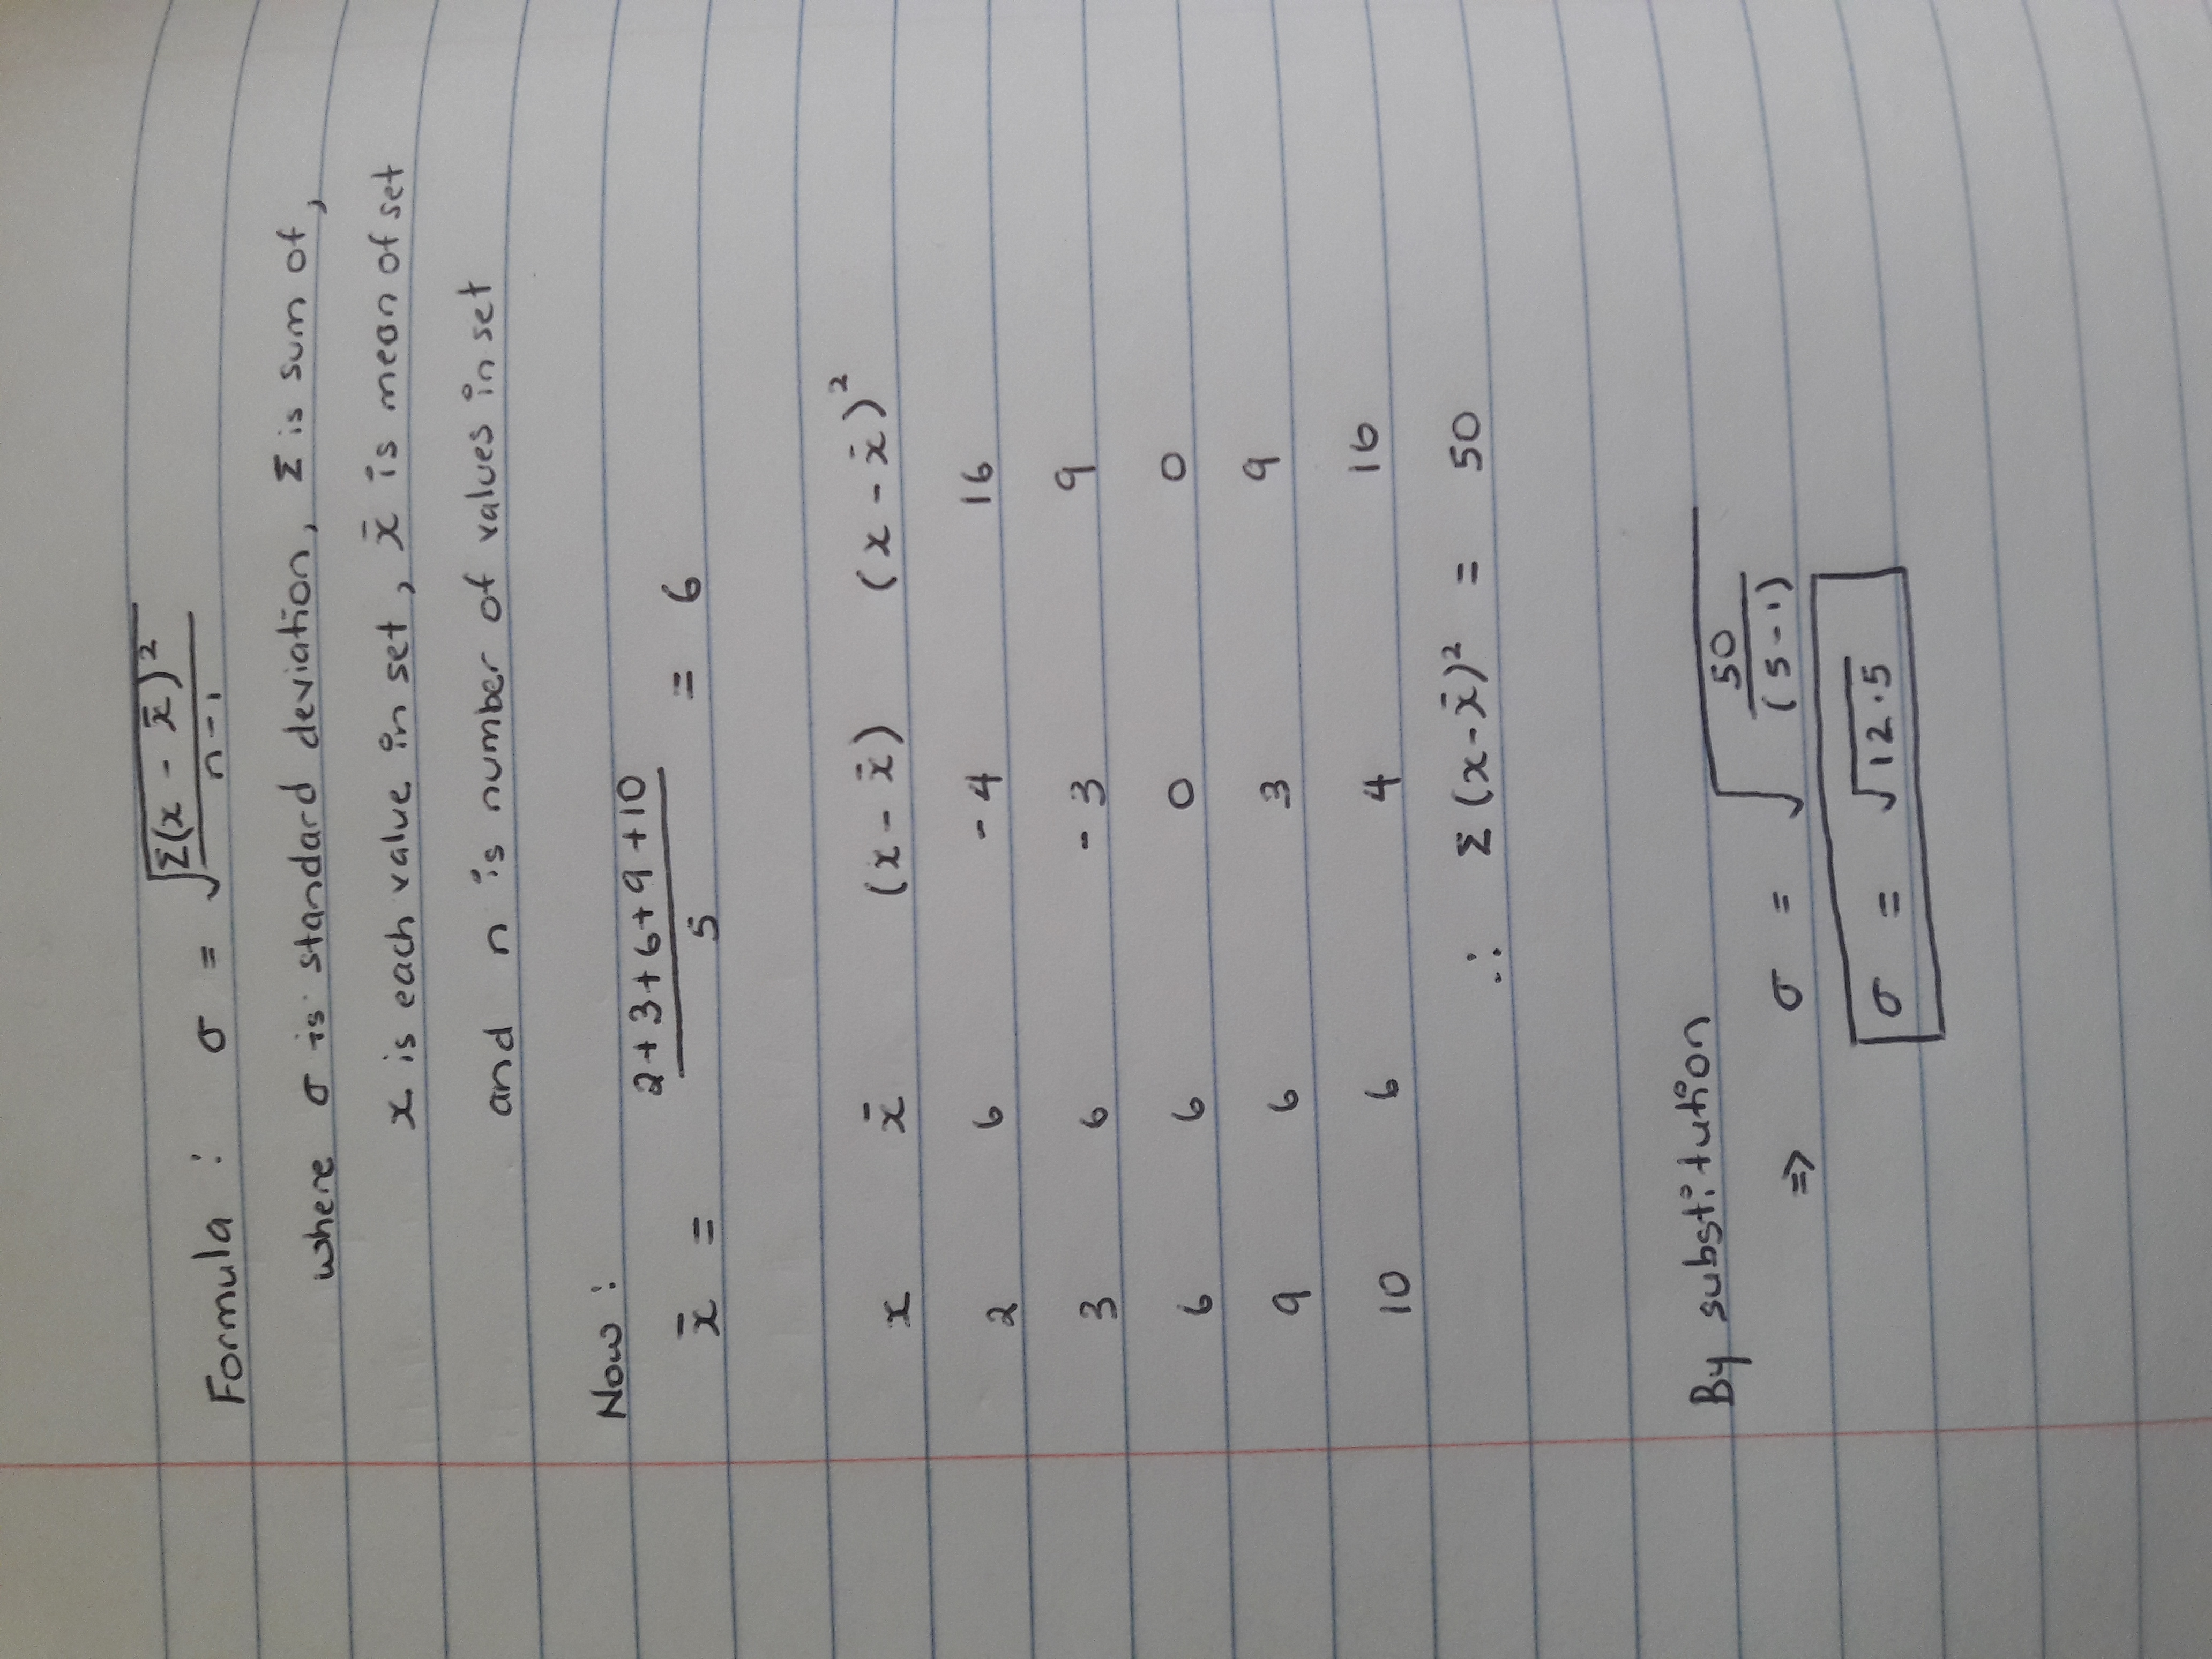 Formula : σ = √(Σ(x - x̄)²/n-1)
where σ is standard deviation, Σ is sum of,
x is each value in set, x̄ is mean of set
and n is number of values in set
Now :
x̄ = (2+3+6+9+10)/5 = 6
x x̄ (x - x̄) (x - x̄)²
2 6 -4 16
3 6 -3 9
6 6 0 0
9 6 3 9
10 6 4 16
∴ Σ(x-x̄)² = 50
By substitution
⇒ σ = √(50/(5-1))
σ = √12.5